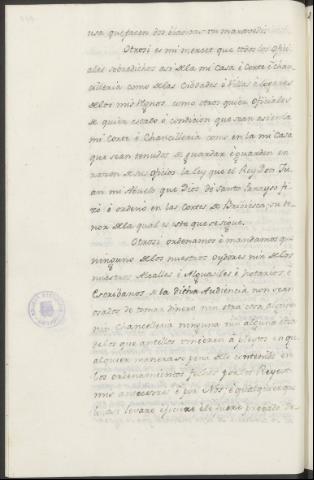 usa que facen dos cosas un maravedi.
Otrosi es mi merced que todos los ofici-
ales sobredichos asi de la mi casa è corte è chan-
cilleria como de las ciudades è villas è lugares
de los mis Rgnos, como otros quien oficiales
de quien estado è condicion que sean asi en la
mi corte è chancilleria como en la mi casa
que sean tenudos de guardar è guarden en
razon de sus oficios la ley que el Rey Don Ju-
an mi Abuelo que Dios dè Santo Parayso fi-
zó è ordenó en las Cortes de Briviesca, su te-
nor de la qual es este que se sigue.
Otrosi ordenamos è mandamos que
ninguno de los nuestros oydores nin de los
nuestros Alcalles è Alguaciles è notarios è
Escribanos de la dicha Audiencia non sean
osados de tomar dinero nin otra cosa alguna
nin Chancilleria ninguna nin alguna
de los que ante ellos vinieren à pleytos en qu-
alquier manera so pena de lo contenido en
los ordenamientos fechos por los Reyes
mis antecesores è por Nos, è qualquier que
lo asi levare è ficiere èl fuere probado de-